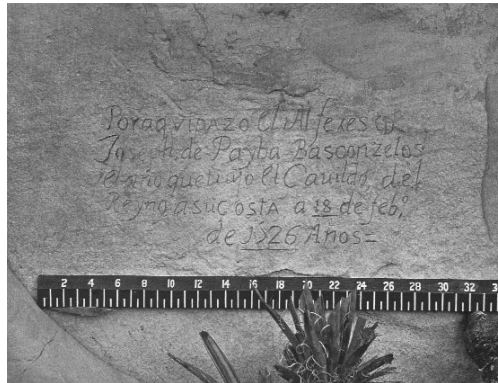 Por aqui paszo el Alferes Dn
Joseph de Payba Basconzelos
el año que tujo el Cauildo del
Reyno a su costa a 18 de feb,o
de 1526 Años =
2 4 6 8 10 12 14 16 18 20 22 24 26 28 30 32